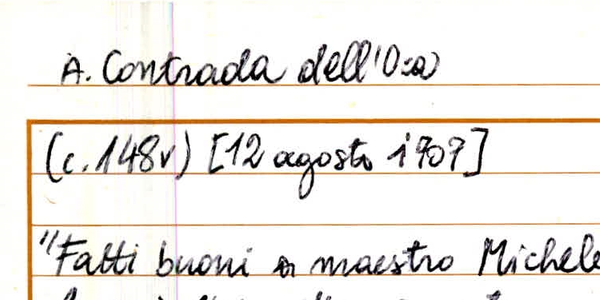 A. Contrada dell'Oca
(c. 148v) [12 agosto 1707]
"Fatti buoni a maestro Michele